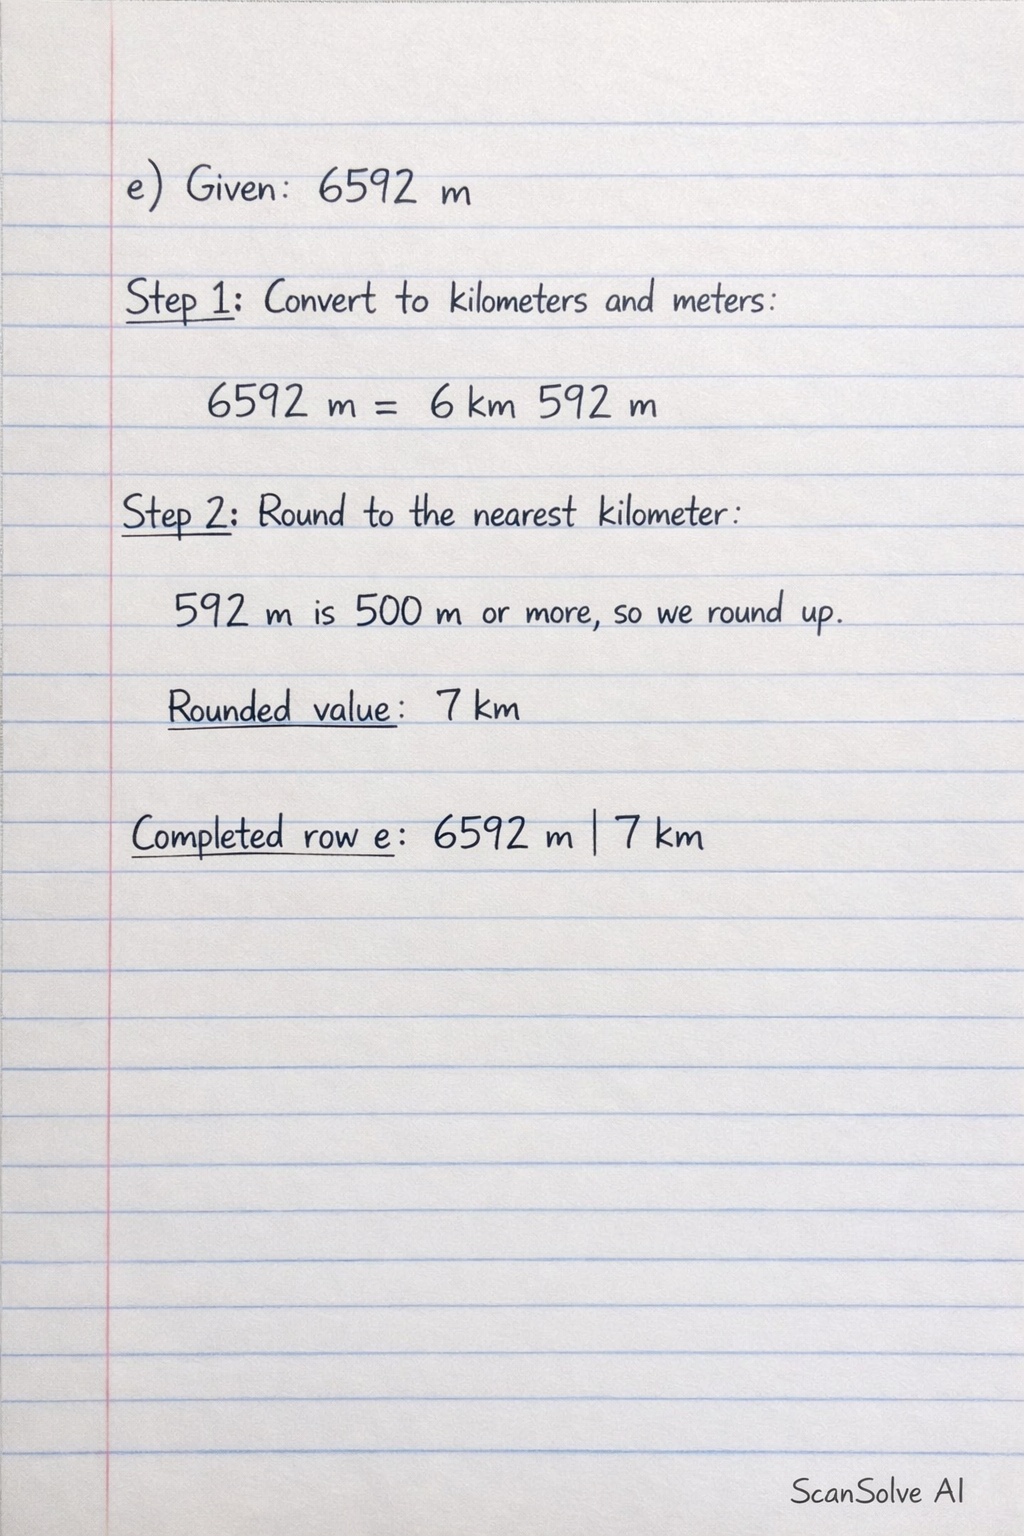 e) Given: 6592 m
Step 1: Convert to kilometers and meters:
6592 m = 6 km 592 m
Step 2: Round to the nearest kilometer:
592 m is 500 m or more, so we round up.
Rounded value: 7 km
Completed row e: 6592 m | 7 km
ScanSolve AI